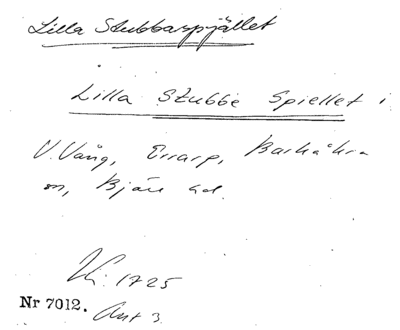 Lilla Stubbaspjället
Lilla Stubbe Spiellet i
V. Vång, Errarp, Barkåkra
sn, Bjäre hd.
1725
Nr 7012. Akt 3.